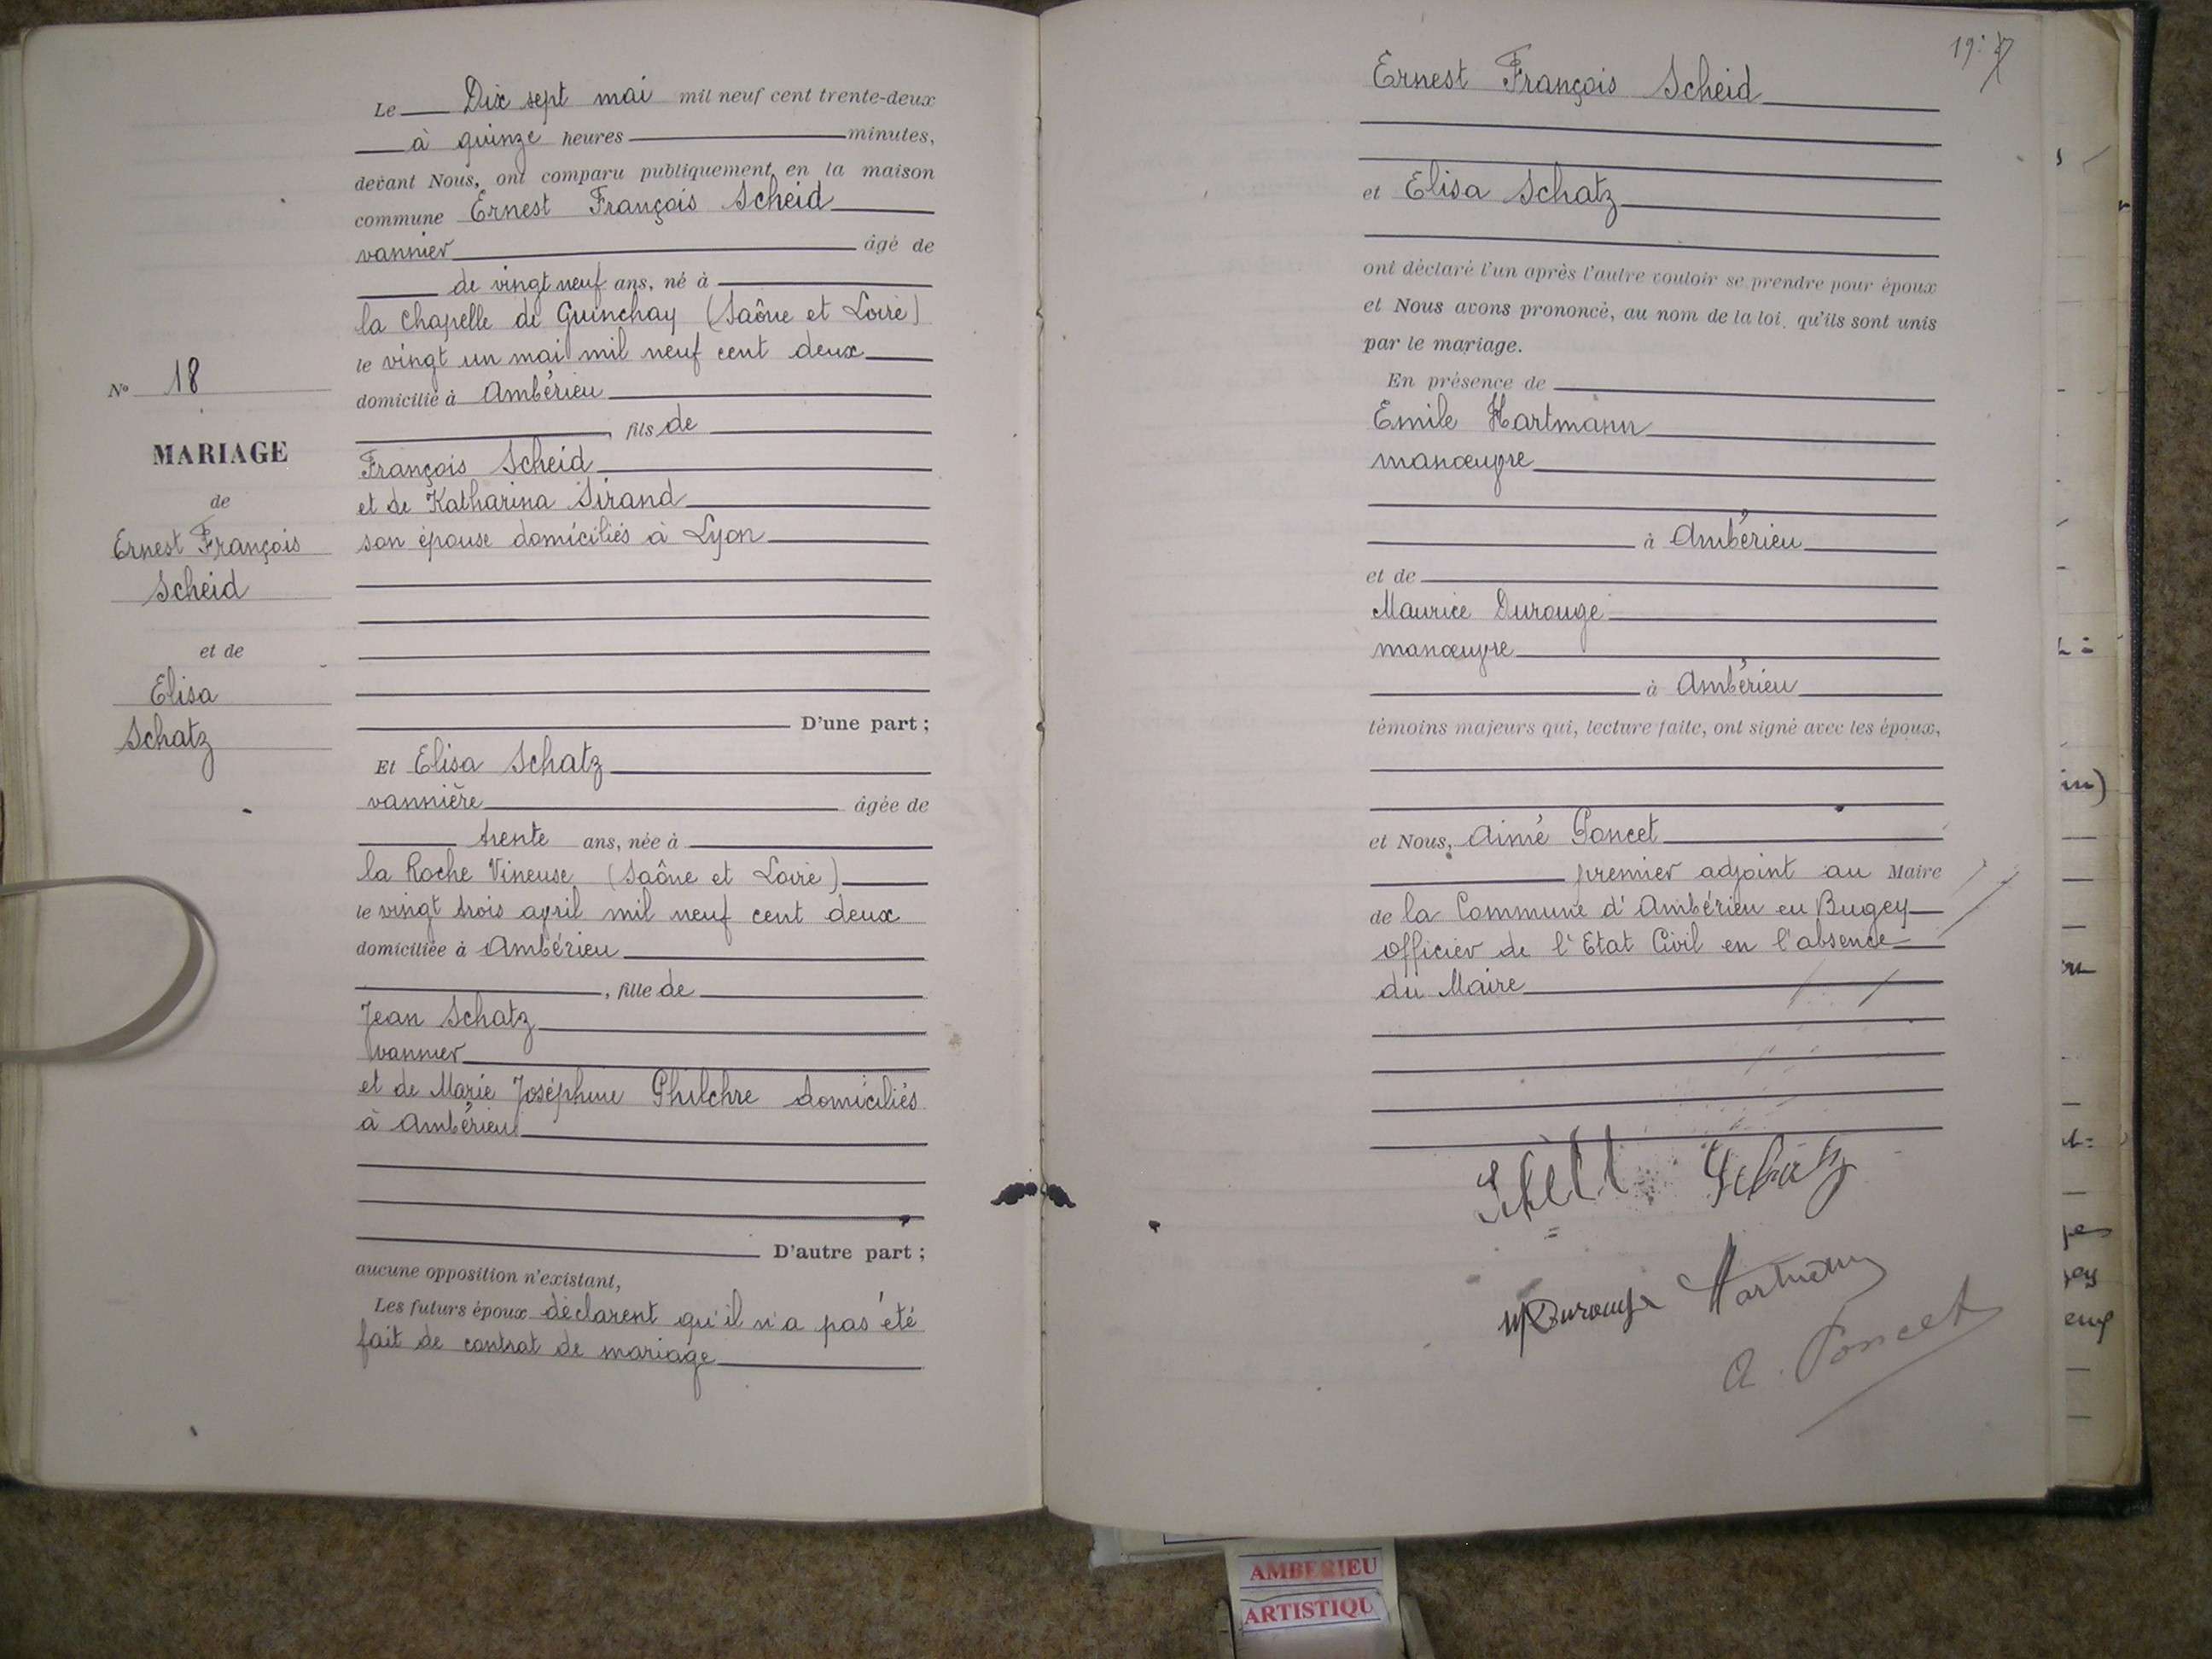 N° 18
MARIAGE
de
Ernest François
Scheid
et de
Elisa
Schatz
Le Dix sept mai mil neuf cent trente-deux
à quinze heures minutes,
devant Nous, ont comparu publiquement en la maison
commune Ernest François Scheid
vannier âgé de
de vingt neuf ans, né à
la Chapelle de Guinchay (Saône et Loire)
le vingt un mai mil neuf cent deux
domicilié à Ambérieu
, fils de
François Scheid
et de Katharina Sirand
son épouse domiciliés à Lyon
D'une part ;
Et Elisa Schatz
vannière âgée de
trente ans, née à
la Roche Vineuse (Saône et Loire)
le vingt trois avril mil neuf cent deux
domiciliée à Ambérieu
, fille de
Jean Schatz
vannier
et de Marie Joséphine Philchre domiciliés
à Ambérieu
D'autre part ;
aucune opposition n'existant,
Les futurs époux déclarent qu'il n'a pas été
fait de contrat de mariage
Ernest François Scheid
et Elisa Schatz
ont déclaré l'un après l'autre vouloir se prendre pour époux
et Nous avons prononcé, au nom de la loi, qu'ils sont unis
par le mariage.
En présence de
Emile Hartmann
manœuvre
à Ambérieu
et de
Maurice Durouge
manœuvre
à Ambérieu
témoins majeurs qui, lecture faite, ont signé avec les époux,
et Nous, Aimé Poncet
premier adjoint au Maire
de la Commune d'Ambérieu en Bugey
officier de l'Etat Civil en l'absence
du Maire
Schatz
M Durouge Hartmann
A. Poncet
in)
AMBERIEU
ARTISTIQU